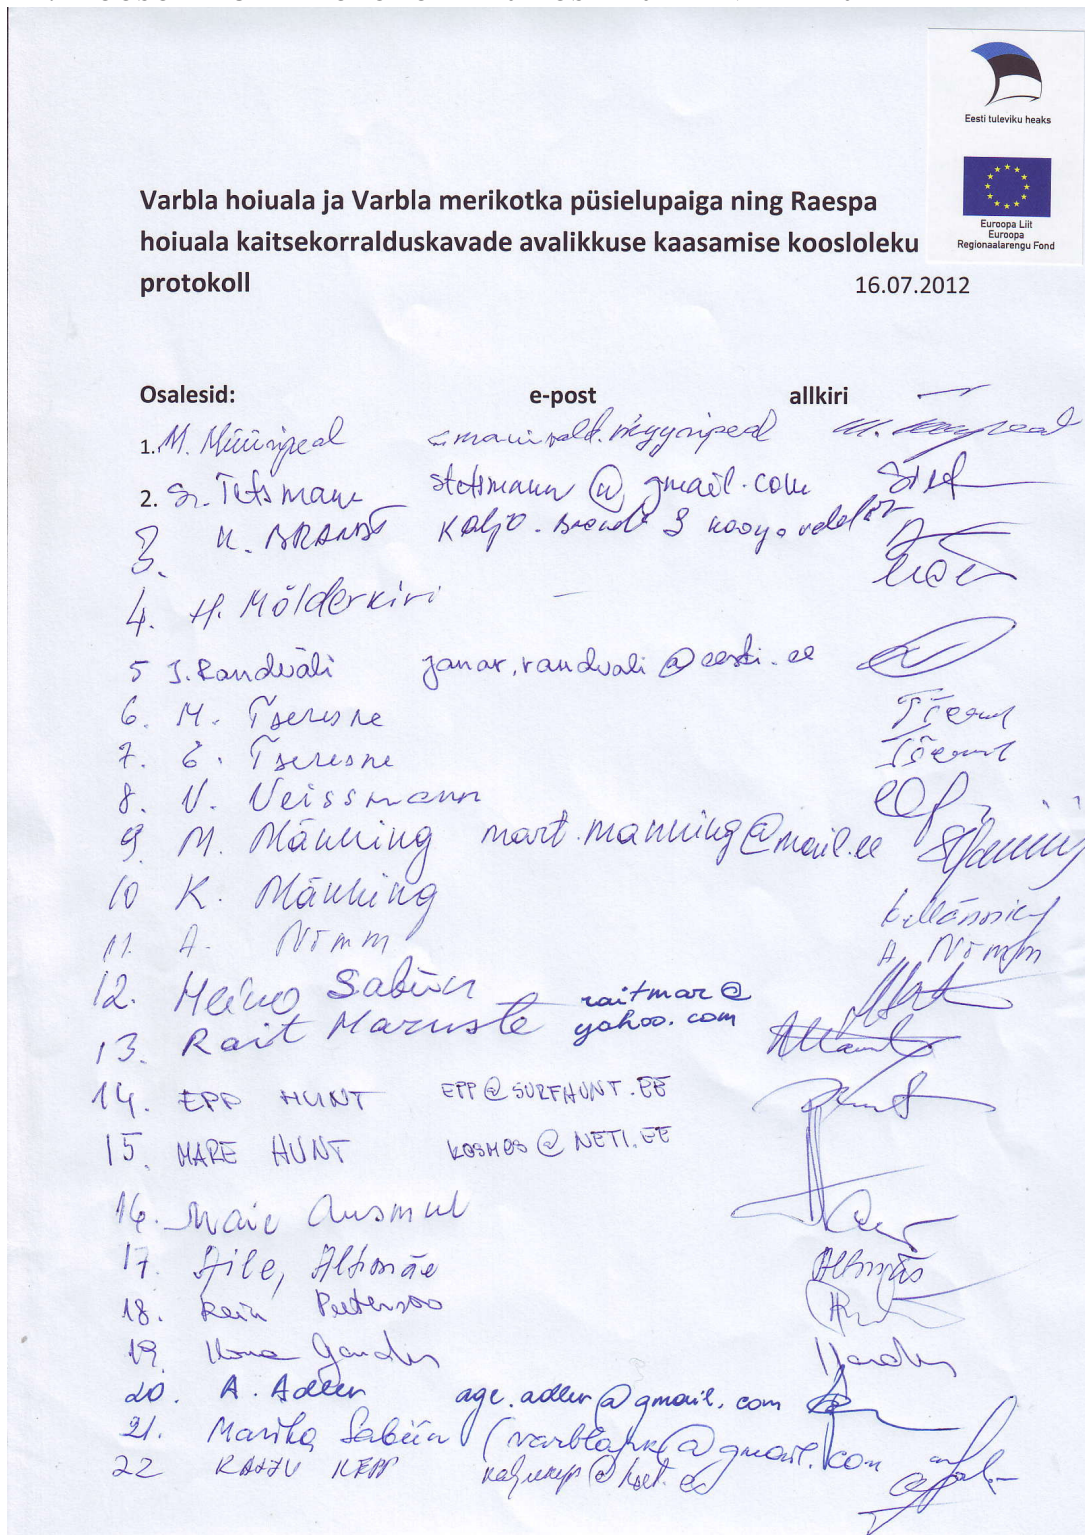 Eesti tuleviku heaks
Euroopa Liit
Euroopa
Regionaalarengu Fond
Varbla hoiuala ja Varbla merikotka püsielupaiga ning Raespa
hoiuala kaitsekorralduskavade avalikkuse kaasamise koosloleku
protokoll 16.07.2012
Osalesid: e-post allkiri
1. M. Müüripeal
2. Sr. Tetsmann stetsmann@gmail.com
3. K. BRANDT
4. H. Mölderkivi –
5 J. Randväli janar.randvali@eesti.ee
6. M. Tseresne
7. E. Tseresne
8. V. Veissmann
9. M. Männing mart.manning@mail.ee
10 K. Männing
11. A. Nõmm A. Nõmm
12. Heino Sabiin
13. Rait Maruste raitmar@
yahoo.com
14. EPP HUNT EPP@SURFHUNT.EE
15. MARE HUNT KOSMOS@NETI.EE
16. Maie Ausmul
17. Aile, Altmäe Altmäe
18. Rein Peetersoo
19.
20. A. Adler age.adler@gmail.com
21. Marika Sabiin @gmail.com
22 KALJU KEPP